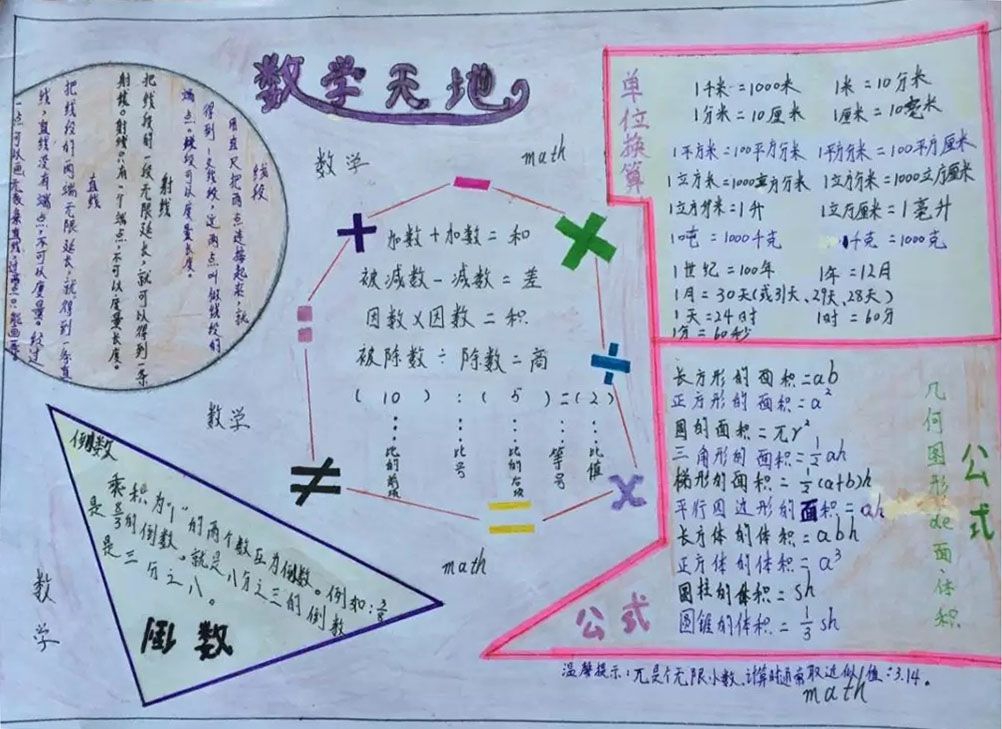 数学天地
数学
math
线段
用直尺把两点连接起来,就
得到一条线段,这两点叫做线段的
端点。线段可以度量长度。
射线
把线段的一段无限延长,就可以得到一条
射线。射线只有一个端点,不可以度量长度。
直线
把线段的两端无限延长,就得到一条直
线,直线没有端点,不可以度量。经过
一点可以画无数条直线,过两点只能画一条
加数+加数=和
被减数-减数=差
因数×因数=积
被除数÷除数=商
(10):(5)=(2)
比的前项
比号
比的后项
等号
比值
+
×
÷
×
=
≠
=
-
数学
math
数学
倒数
乘积为"1"的两个数互为倒数。例如:3/8
是8/3的倒数。就是八分之三的倒数
是三分之八。
倒数
单位换算
1千米=1000米 1米=10分米
1分米=10厘米 1厘米=10毫米
1平方米=100平方分米 1平方分米=100平方厘米
1立方米=1000立方分米 1立方分米=1000立方厘米
1立方分米=1升 1立方厘米=1毫升
10吨=1000千克 1千克=1000克
1世纪=100年 1年=12月
1月=30天(或31天、29天、28天)
1天=24时 1时=60分
1分=60秒
长方形的面积=ab
正方形的面积=a²
圆的面积=πr²
三角形的面积=1/2ah
梯形的面积=1/2(a+b)h
平行四边形的面积=ah
长方体的体积=abh
正方体的体积=a³
圆柱的体积=sh
圆锥的体积=1/3sh
几何图形de面·体积
公式
公式
温馨提示:π是个无限小数,计算时通常取近似值:3.14。
math